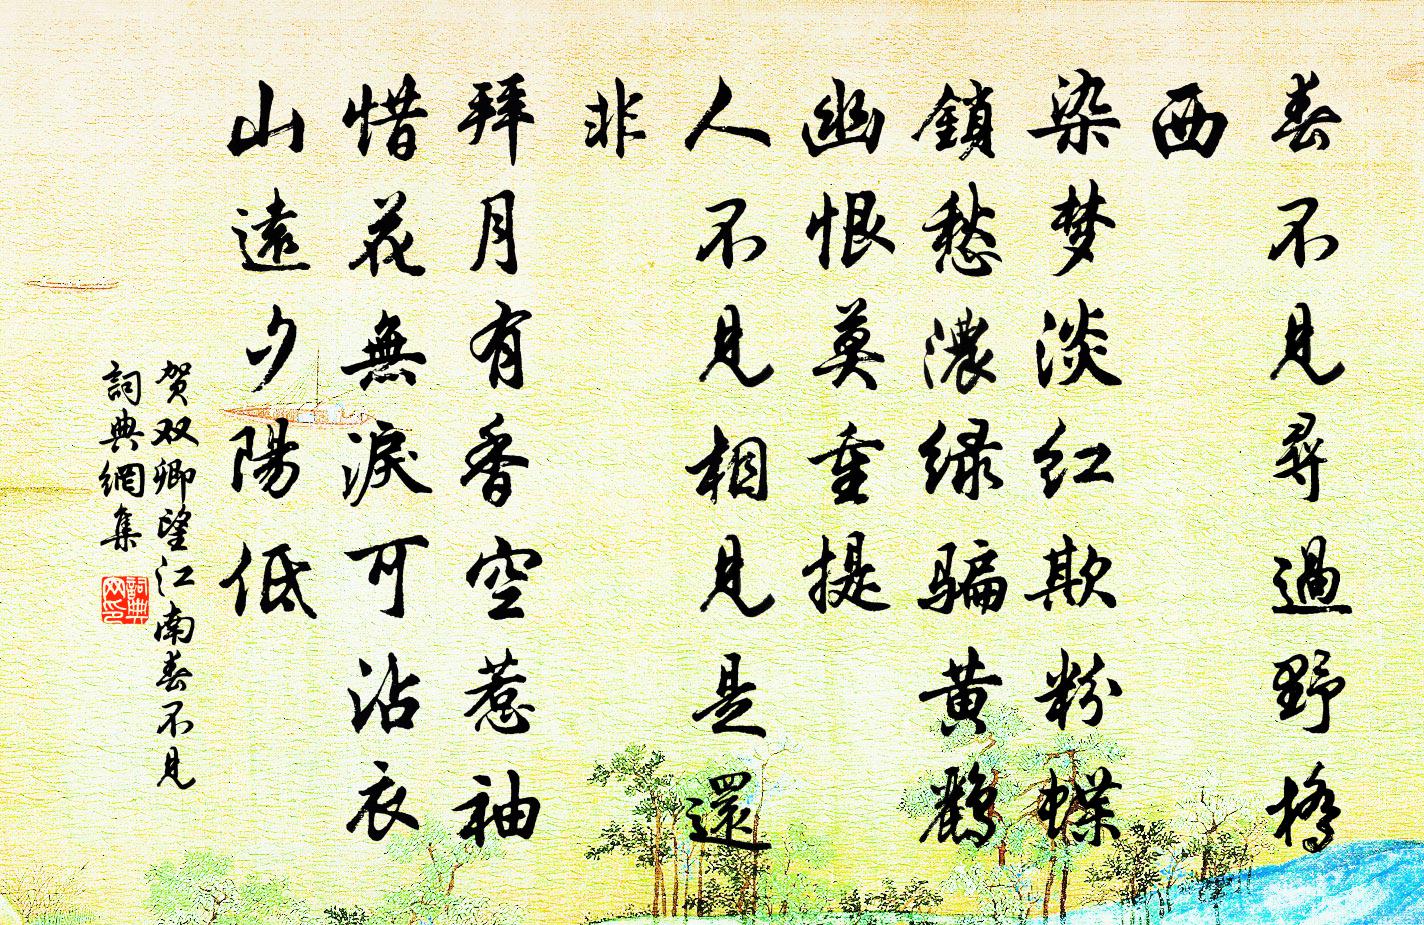 春不見尋過野橋
西
染梦淡红欺粉蝶
鎖愁濃绿骗黄鸝
幽恨莫重提
人不見相見是還
非
拜月有香空惹袖
惜花無淚可沾衣
山遠夕陽低
贺双卿望江南春不見
詞典網集
詞典网印